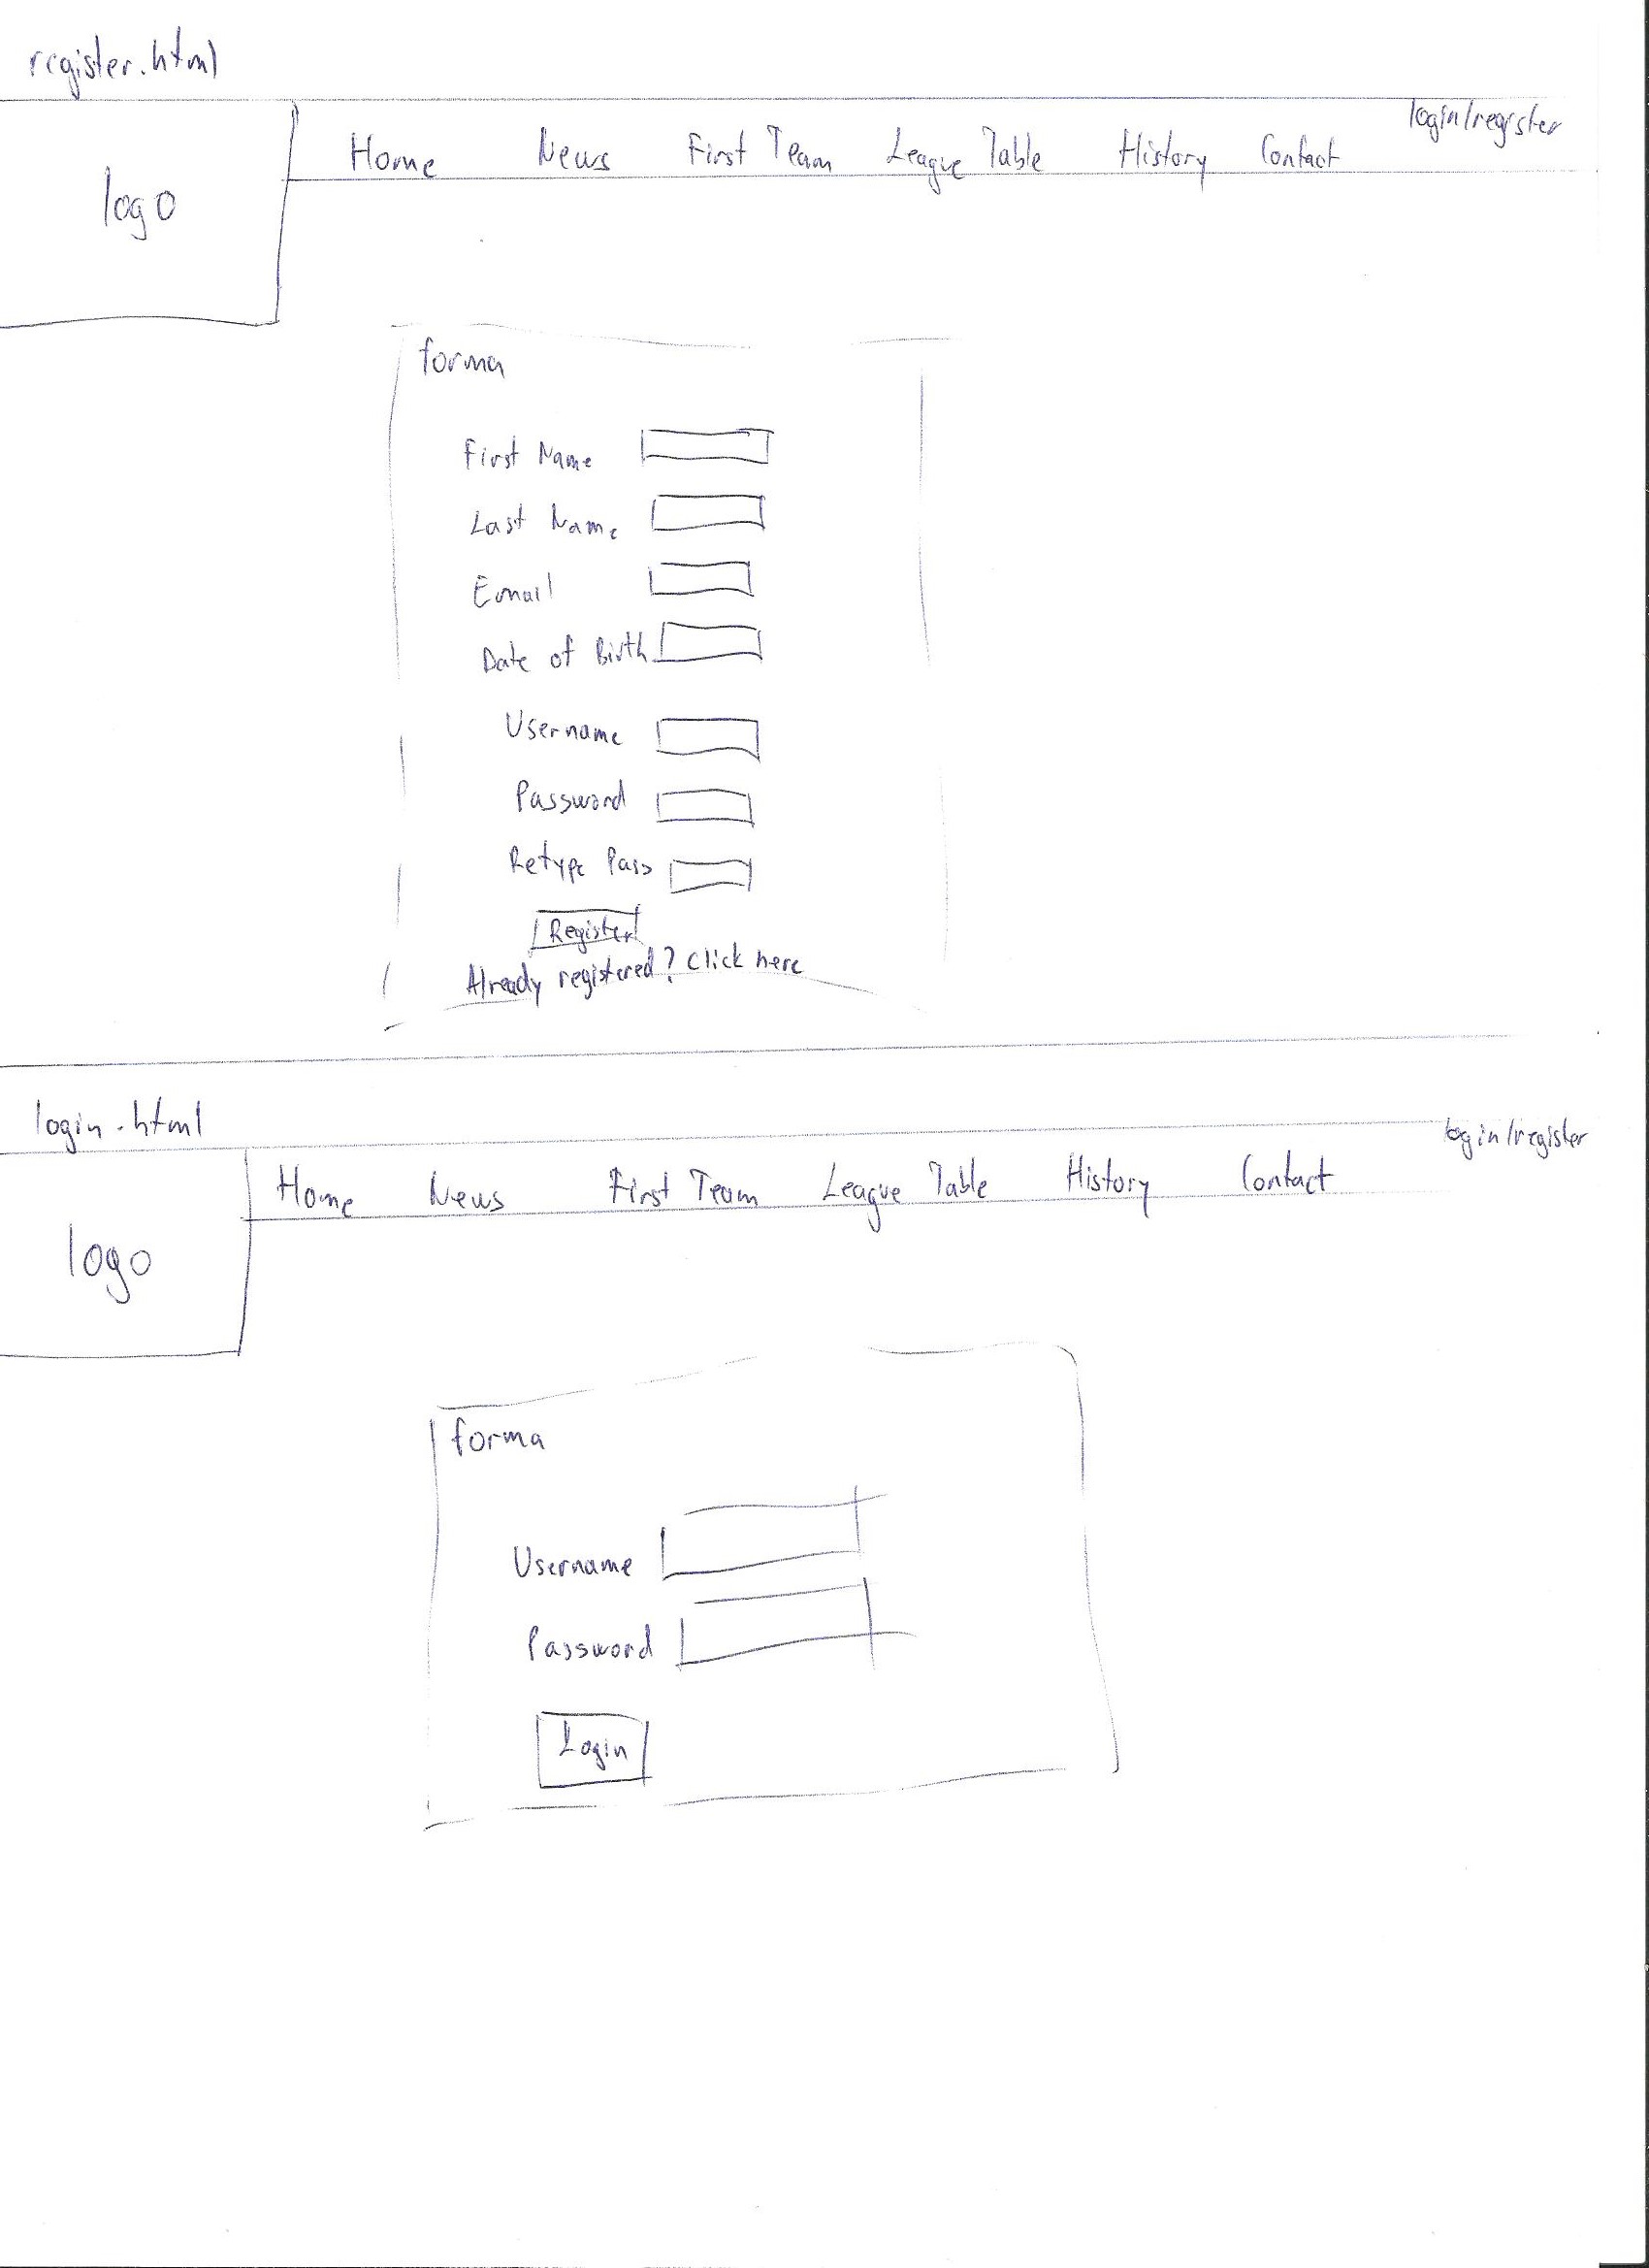 register.html
login/register
Home News First Team League Table History Contact
logo
forma
First Name
Last Name
Email
Date of Birth
Username
Password
Retype Pass
Register
Already registered? Click here
login.html
login/register
Home News First Team League Table History Contact
logo
forma
Username
Password
Login